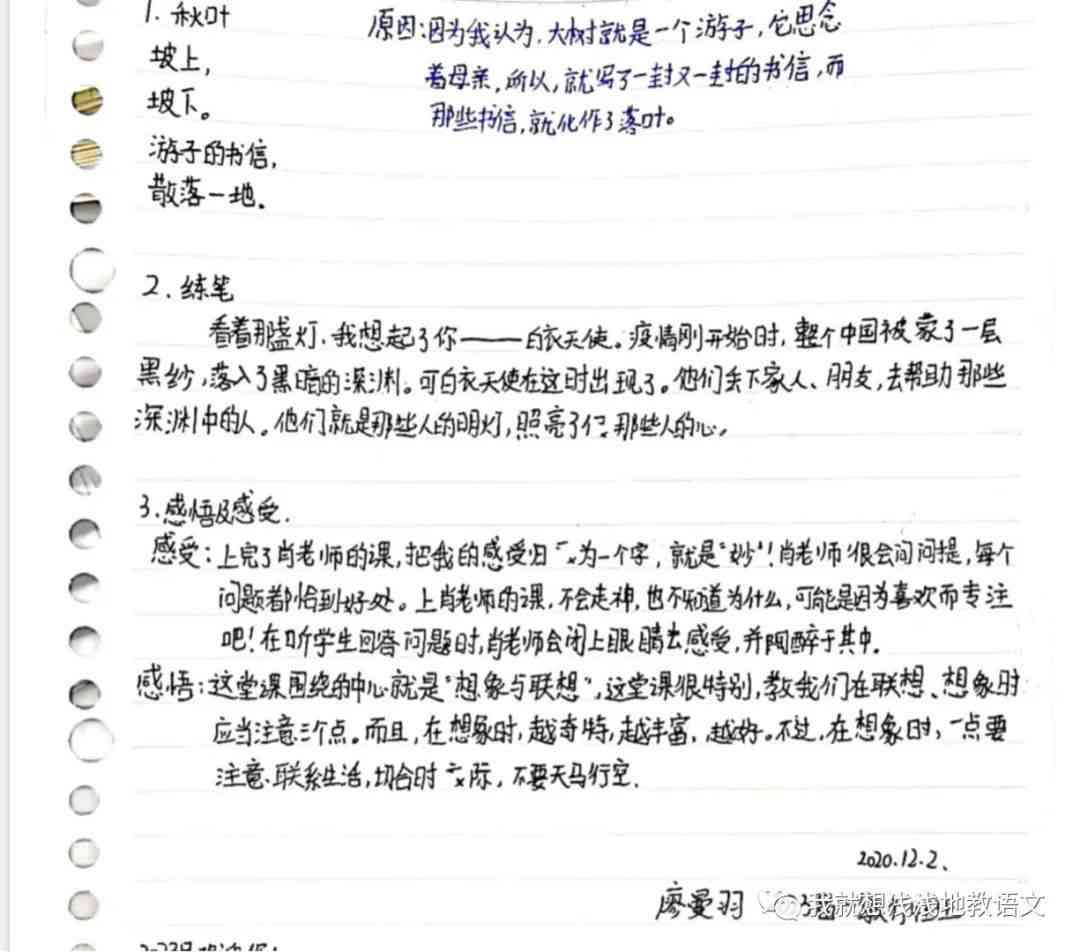 1. 秋叶
坡上，
坡下。
游子的书信，
散落一地。
原因:因为我认为,大树就是一个游子,它思念
着母亲,所以,就写了一封又一封的书信,而
那些书信,就化作了落叶。
2. 练笔
看着那盏灯,我想起了你——白衣天使。疫情刚开始时,整个中国被蒙了一层
黑纱,落入了黑暗的深渊。可白衣天使在这时出现了。他们丢下家人、朋友,去帮助那些
深渊中的人。他们就是那些人的明灯,照亮了那些人的心。
3.感悟及感受.
感受:上完了肖老师的课,把我的感受归为一个字,就是"妙"!肖老师很会问问提,每个
问题都恰到好处。上肖老师的课,不会走神,也不知道为什么,可能是因为喜欢而专注
吧!在听学生回答问题时,肖老师会闭上眼睛去感受,并陶醉于其中.
感悟:这堂课围绕的中心就是"想象与联想",这堂课很特别,教我们在联想、想象时
应当注意三个点。而且,在想象时,越奇特,越丰富,越好。不过,在想象时,一点要
注意、联系生活,切合时际,不要天马行空.
2020.12.2、
廖曼羽
我就想浅浅地教语文